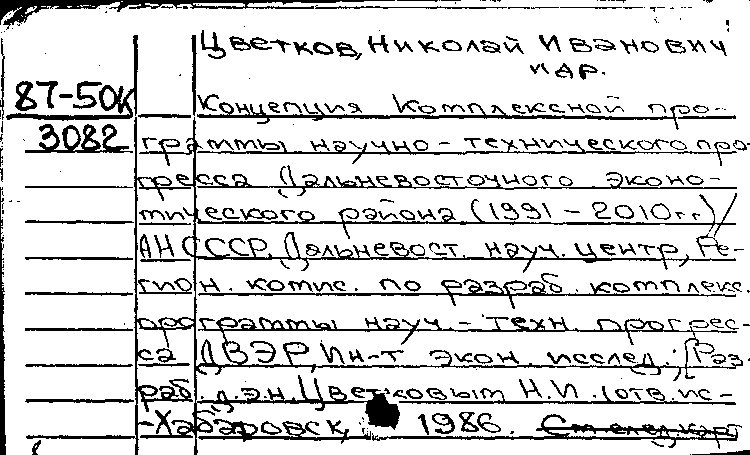 Цветков, Николай Иванович
и др.
87-50К Концепция Комплексной про-
3082 граммы научно-технического про-
гресса Дальневосточного эконо-
мического района (1991-2010гг)/
АН СССР, Дальневост. науч. центр, Ре-
гион. комис. по разраб. комплекс.
программы науч.-техн. прогрес-
са ДВЭР, Ин-т экон. исслед.; [Раз-
раб. д.э.н. Цветковым Н.И. (отв. ис-
-Хабаровск, 1986. См след. карт